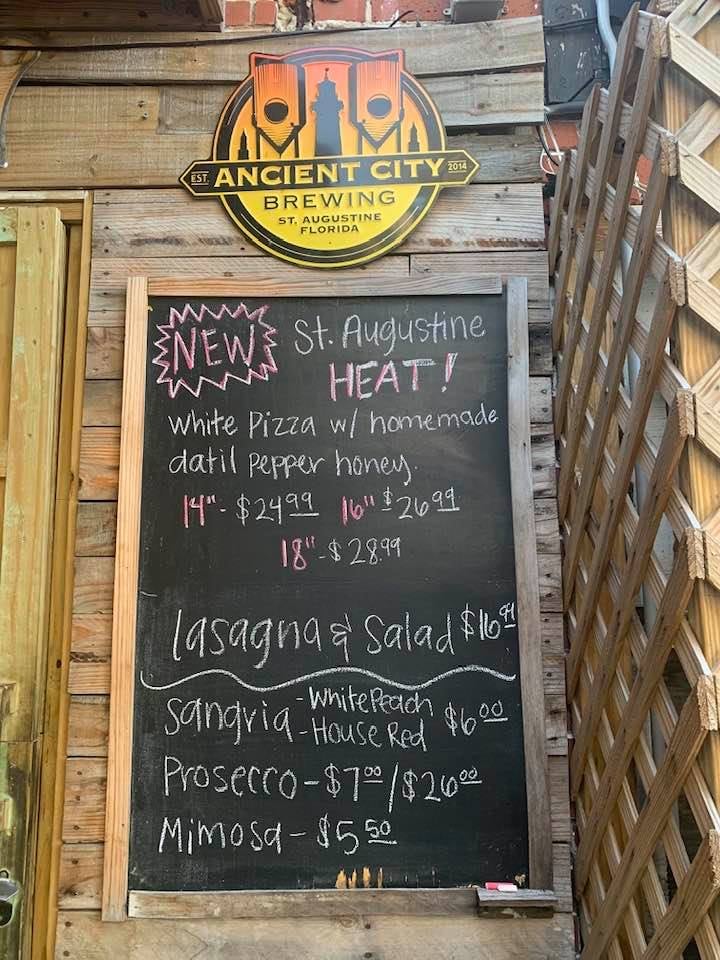 EST. ANCIENT CITY 2014
BREWING
ST. AUGUSTINE
FLORIDA
NEW St. Augustine
HEAT!
White Pizza w/ homemade
datil pepper honey.
14"- $24.99 16" $26.99
18"-$28.99
lasagna & Salad $16.99
Sangria -White Peach $6.00
-House Red
Prosecco-$7.00/$26.00
Mimosa-$5.50